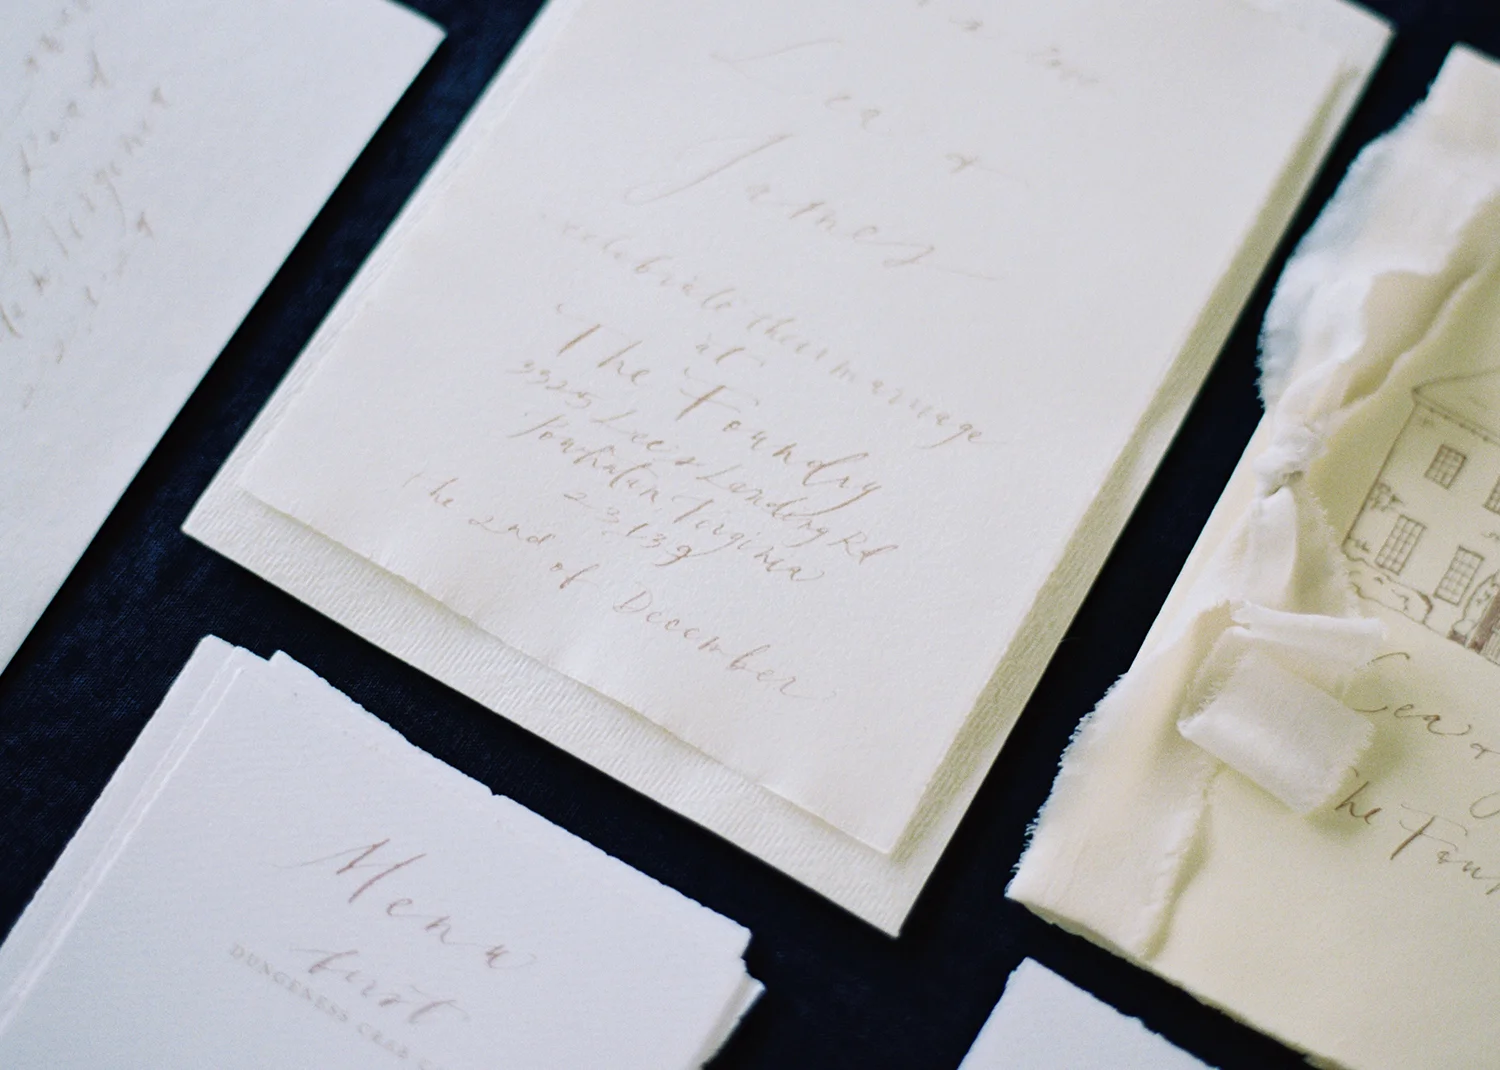 Lea +
James
celebrate their marriage
at
The Foundry
3325 Lees Landing Rd
Powhatan Virginia
23139
The 2nd
of December
Menu
first
DUNGENESS CRAB
Lea +
The Foun
Road